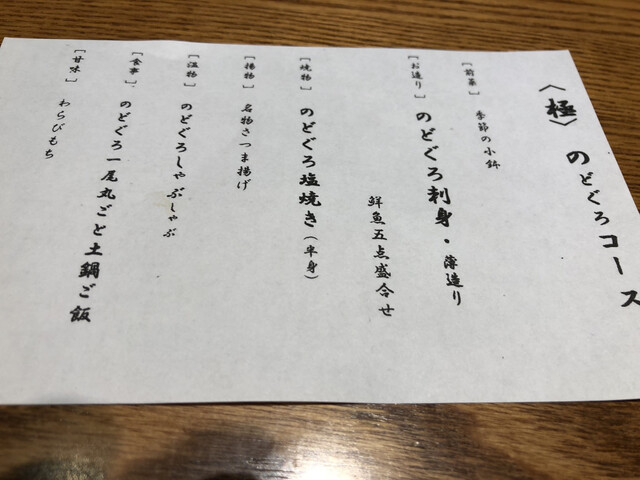 〈極〉のどぐろコース
［前菜］ 季節の小鉢
［お造り］ のどぐろ刺身・薄造り
鮮魚五点盛合せ
［焼物］ のどぐろ塩焼き（半身）
［揚物］ 名物さつま揚げ
［温物］ のどぐろしゃぶしゃぶ
［食事］ のどぐろ一尾丸ごと土鍋ご飯
［甘味］ わらびもち